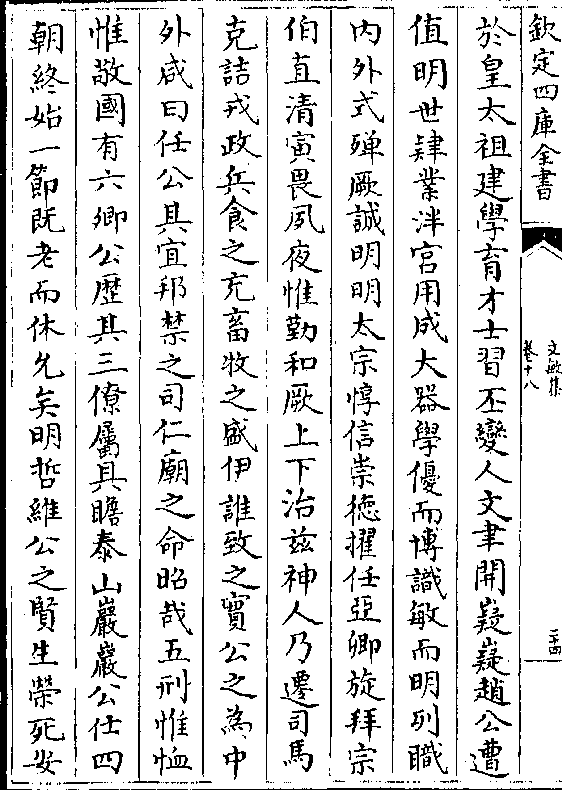 欽定四庫全書
文敏集
卷十八
二十四
於皇太祖建學育才士習丕變人文聿開嶷嶷趙公遭
值明世肄業泮宮用成大器學優而博識敏而明列職
内外式殫厥誠明明太宗惇信崇徳擢任亞卿旋拜宗
伯直清寅畏夙夜惟勤和厥上下治兹神人乃遷司馬
克詰戎政兵食之充畜牧之盛伊誰致之實公之為中
外咸曰任公其宜邦禁之司仁廟之命昭哉五刑惟恤
惟敬國有六卿公歴其三僚屬具瞻泰山巖巖公仕四
朝終始一節既老而休允矣明哲維公之賢生榮死安